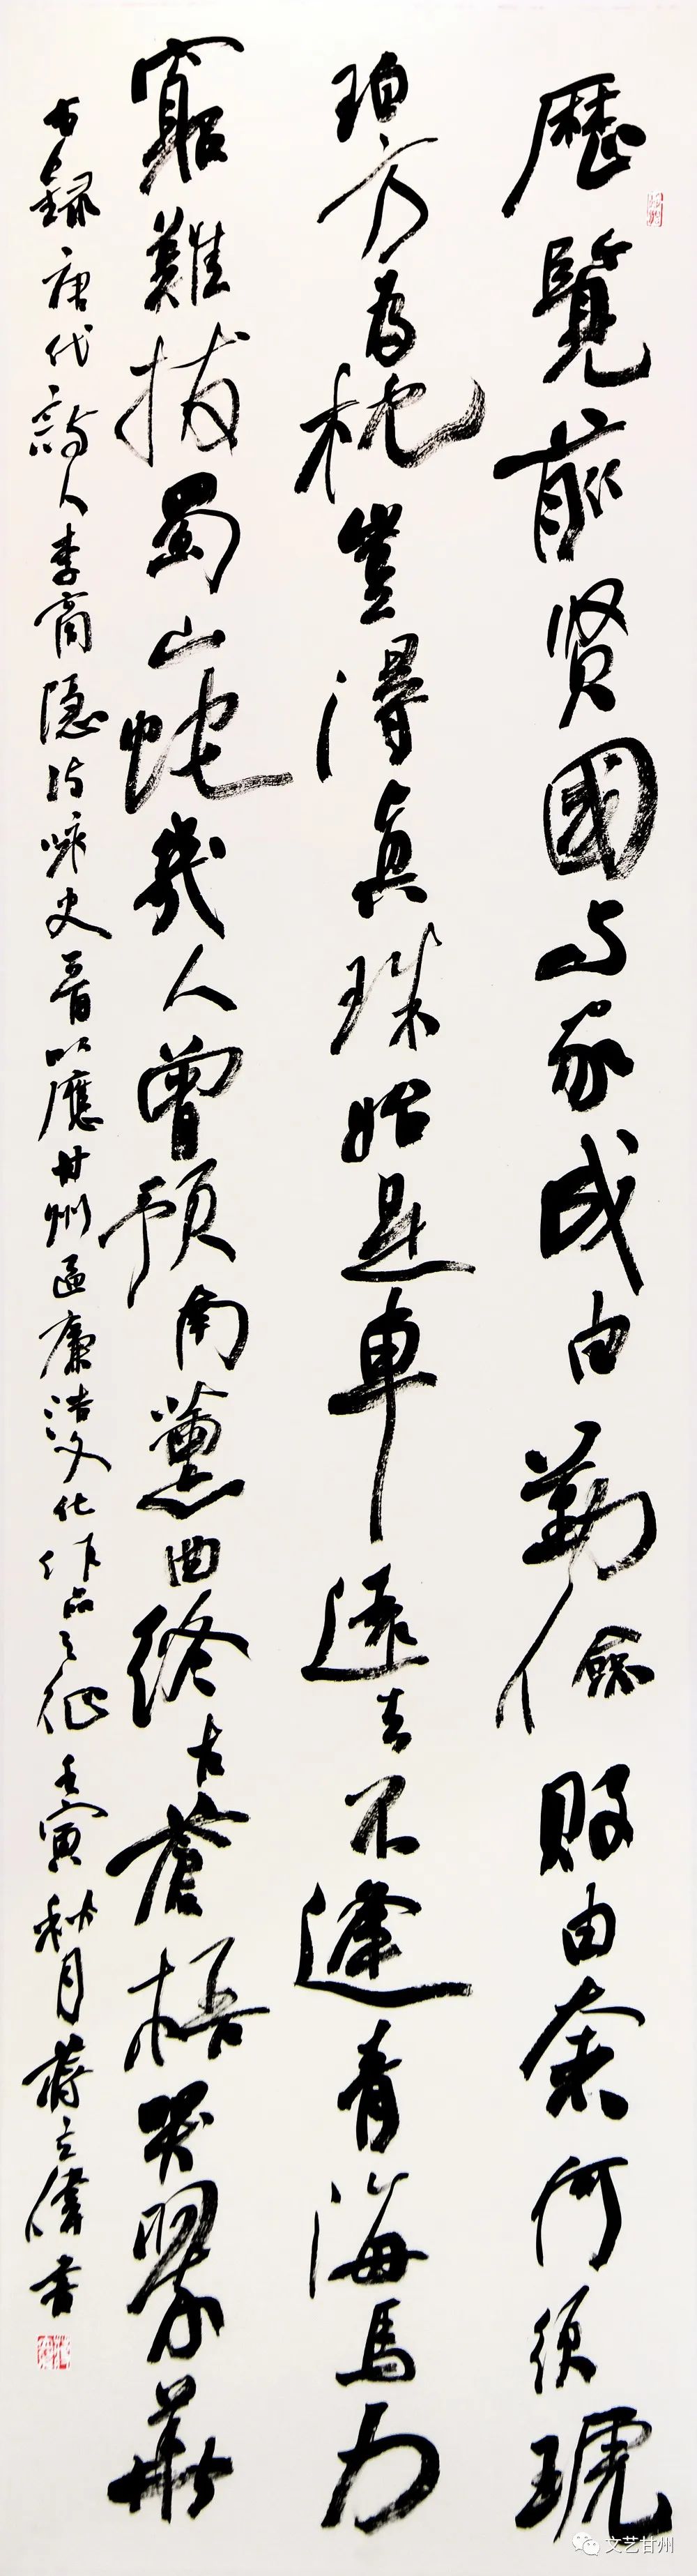 歷覽前贤國与家成由勤儉敗由奢何須琥
珀方為枕豈得真珠始是車遠去不逢青海馬力
窮難拔蜀山蛇幾人曾預南薰曲終古蒼梧哭翠華
右錄唐代詩人李商隐诗咏史一首以應甘州區廉洁文化作品之征壬寅秋月蔣立偉書
文艺甘州